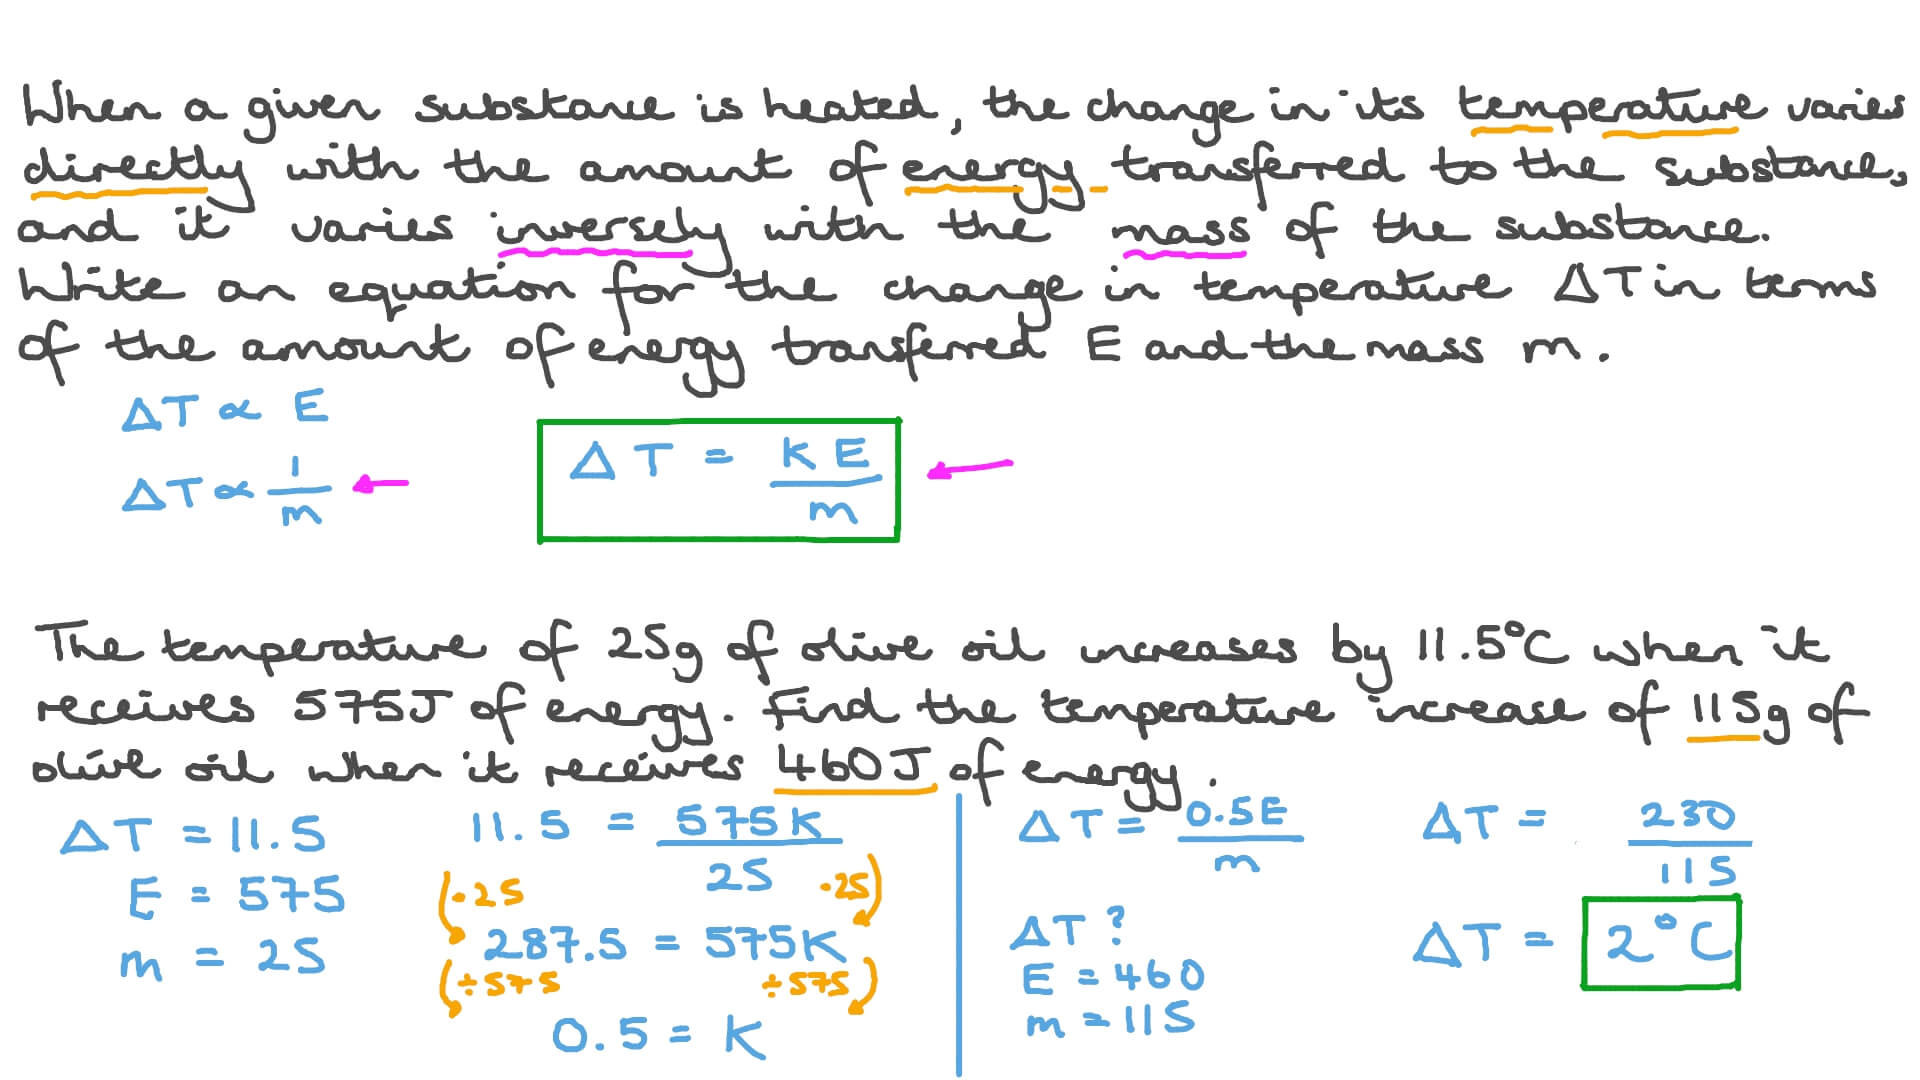 When a given substance is heated, the change in its temperature varies
directly with the amount of energy transferred to the substance,
and it varies inversely with the mass of the substance.
Write an equation for the change in temperature ΔT in terms
of the amount of energy transferred E and the mass m.
ΔT ∝ E
ΔT ∝ 1/m
ΔT = KE/m
The temperature of 25g of olive oil increases by 11.5°C when it
receives 575J of energy. Find the temperature increase of 115g of
olive oil when it receives 460J of energy.
ΔT = 11.5
E = 575
m = 25
11.5 = 575K/25
·25 ·25
287.5 = 575K
÷575 ÷575
0.5 = K
ΔT = 0.5E/m
ΔT ?
E = 460
m = 115
ΔT = 230/115
ΔT = 2°C